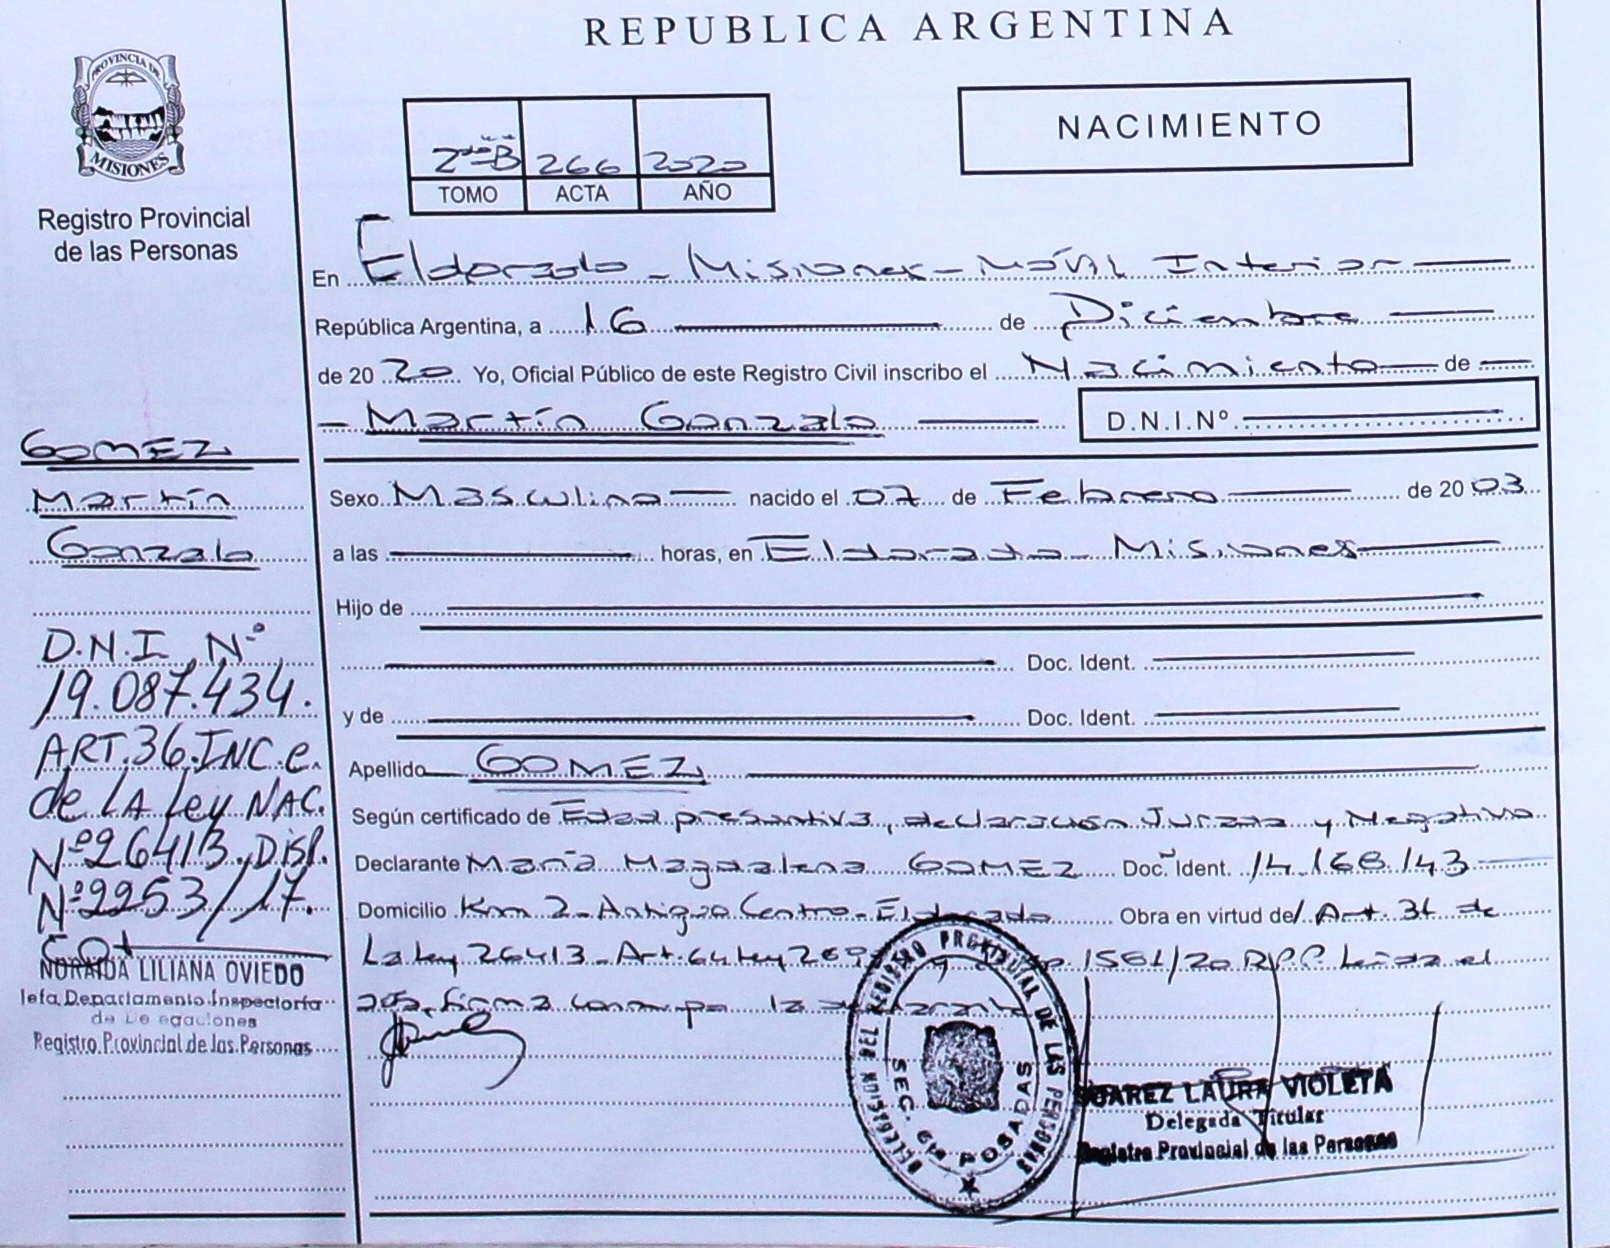 REPUBLICA ARGENTINA
PROVINCIA DE
MISIONES
Registro Provincial
de las Personas
NACIMIENTO
2do B 266 2020
TOMO ACTA AÑO
En Eldorado - Misiones - Móvil Interior
República Argentina, a 16 de Diciembre
de 20 20 Yo, Oficial Público de este Registro Civil inscribo el Nacimiento de
Martín Gonzalo D.N.I.Nº
Sexo Masculino nacido el 07 de Febrero de 20 03
a las horas, en Eldorado - Misiones
Hijo de
Doc. Ident.
y de Doc. Ident.
Apellido GOMEZ
Según certificado de Edad presuntiva, declaración Jurada y Negativo
Declarante María Magdalena GOMEZ Doc. Ident. 14.168.143
Domicilio Km 2 - Antiguo Centro - Eldorado Obra en virtud del Art. 36 de
La Ley 26413 - Art. 64 Ley 1561/20 R.P.P. Leída el
acta, firma la
GOMEZ
Martín
Gonzalo
D.N.I. Nº
19.087.434.
ART. 36. INC. e.
de LA Ley NAC.
Nº 26413, Disp.
Nº 2253/17.
NORAIDA LILIANA OVIEDO
Jefa Departamento Inspectoría
de Delegaciones
Registro Provincial de las Personas
DELEGACION DEL REGISTRO PROVINCIAL DE LAS PERSONAS
SEC. 6ta POSADAS
SUAREZ LAURA VIOLETA
Delegada Titular
Registro Provincial de las Personas